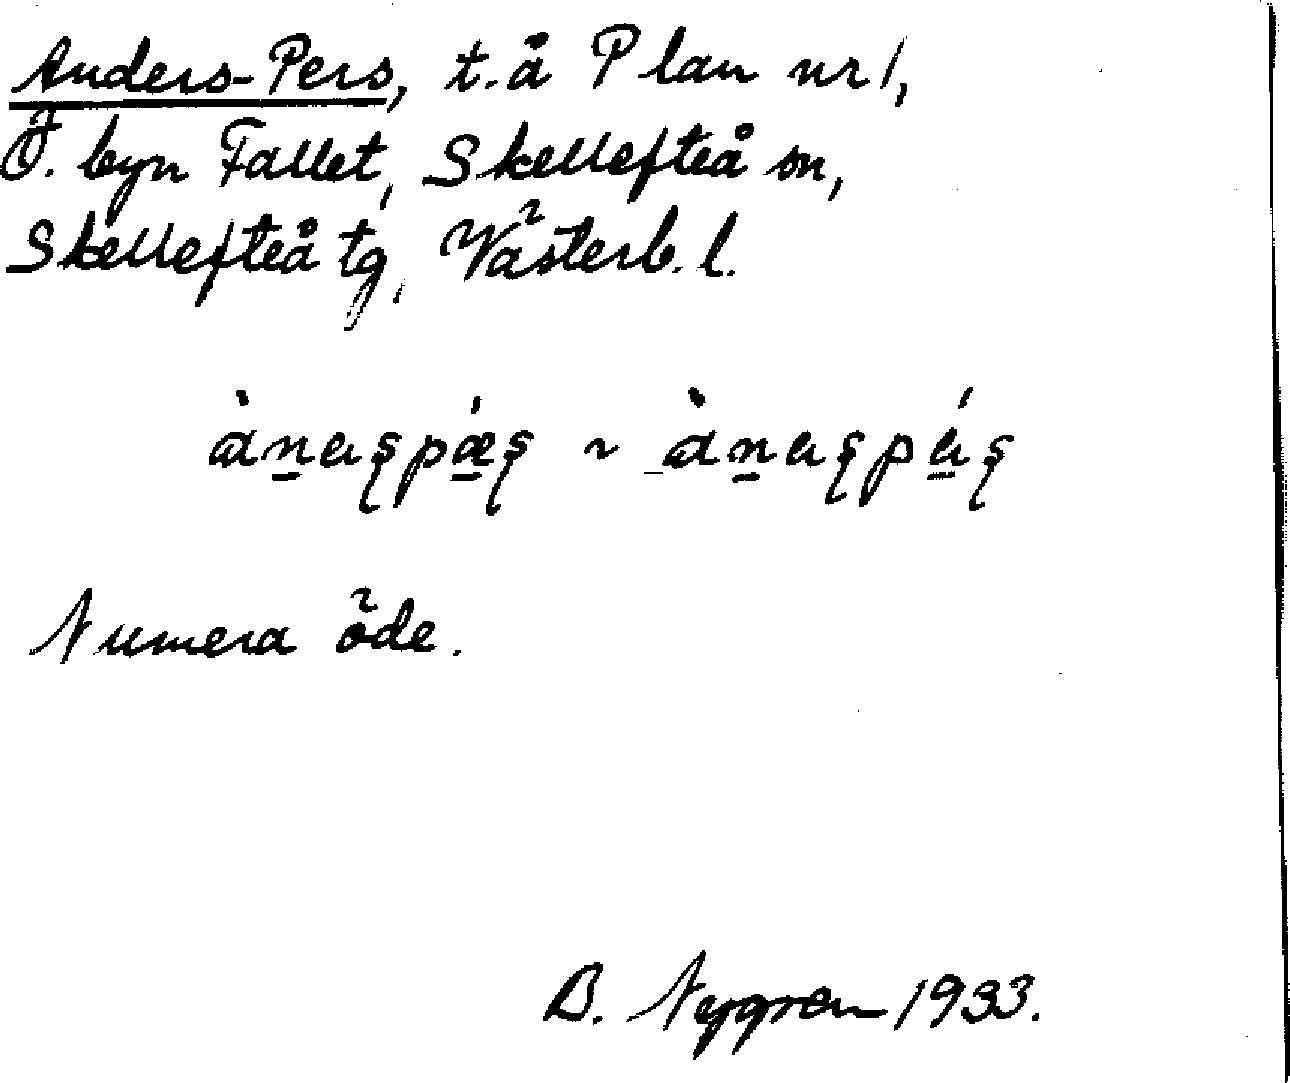 Anders-Pers, t. å Plan nr 1,
Ö. byn Fallet, Skellefteå sn,
Skellefteå tg, Västerb. l.
ànaʂpǽʂ ~ ànaʂpáʂ
Numera öde.
B. Nygren 1933.